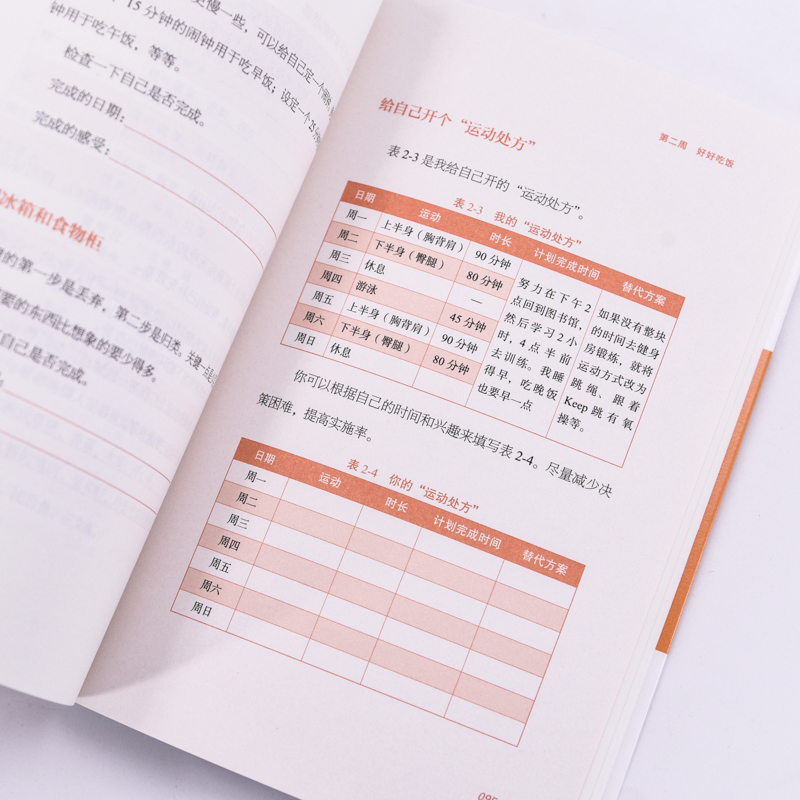 更慢一些，可以给自己定一个闹钟
15 分钟的闹钟用于吃早饭；设定一个25分
钟用于吃午饭，等等。
检查一下自己是否完成。
完成的日期：
完成的感受：
冰箱和食物柜
的第一步是丢弃，第二步是归类，
要的东西比想象的要少得多。
自己是否完成。
第二周 好好吃饭
给自己开个“运动处方”
表 2-3 是我给自己开的“运动处方”。
表 2-3 我的“运动处方”
日期 运动 时长 计划完成时间 替代方案
周一 上半身（胸背肩） 90 分钟
周二 下半身（臀腿） 80 分钟
周三 休息 —
周四 游泳 45 分钟
周五 上半身（胸背肩） 90 分钟
周六 下半身（臀腿） 80 分钟
周日 休息
努力在下午 2
点回到图书馆，
然后学习 2 小
时，4 点半前
去训练。我睡
得早，吃晚饭
也要早一点
如果没有整块
的时间去健身
房锻炼，就将
运动方式改为
跳绳、跟着
Keep 跳有氧
操等。
你可以根据自己的时间和兴趣来填写表 2-4。尽量减少决
策困难，提高实施率。
表 2-4 你的“运动处方”
日期 运动 时长 计划完成时间 替代方案
周一
周二
周三
周四
周五
周六
周日